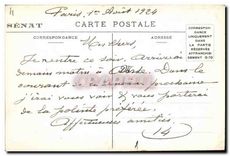 Paris, 1er Août 1924
CARTE POSTALE
SÉNAT
CORRESPONDANCE
ADRESSE
CORRESPON-
DANCE
UNIQUEMENT
DANS LA
PARTIE
RÉSERVÉE
AFFRANCHIS-
SEMENT 0.10
Mes chers,
Je rentre ce soir. Arriverai
demain matin à
courant de la semaine prochaine
j'irai vous voir & vous porterai
de la
Affectueuses amitiés